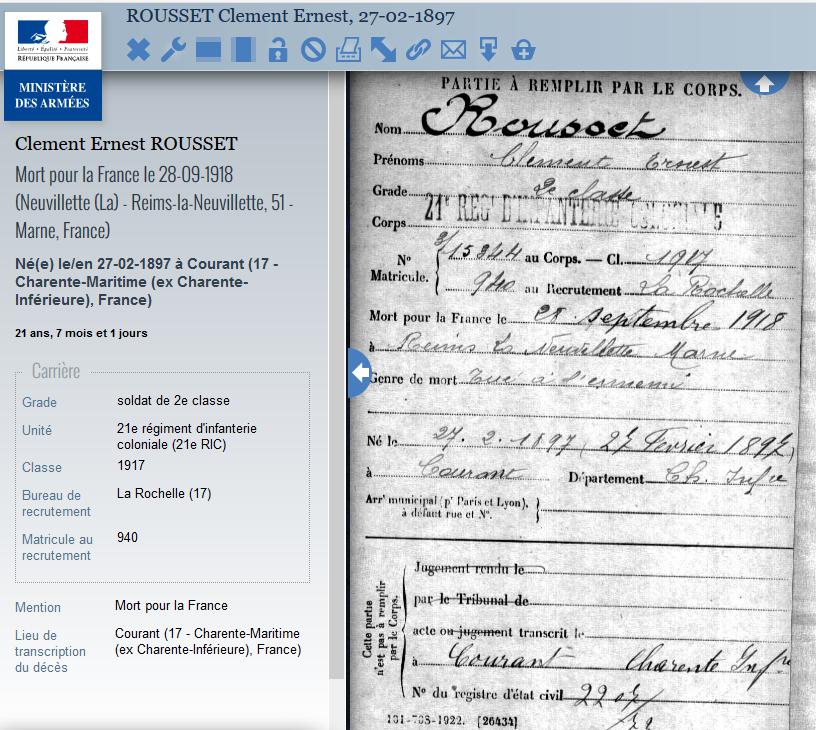 ROUSSET Clement Ernest, 27-02-1897
Liberté • Égalité • Fraternité
RÉPUBLIQUE FRANÇAISE
MINISTÈRE
DES ARMÉES
Clement Ernest ROUSSET
Mort pour la France le 28-09-1918
(Neuvillette (La) - Reims-la-Neuvillette, 51 -
Marne, France)
Né(e) le/en 27-02-1897 à Courant (17 -
Charente-Maritime (ex Charente-
Inférieure), France)
21 ans, 7 mois et 1 jours
Carrière
Grade soldat de 2e classe
Unité 21e régiment d'infanterie
coloniale (21e RIC)
Classe 1917
Bureau de La Rochelle (17)
recrutement
Matricule au 940
recrutement
Mention Mort pour la France
Lieu de Courant (17 - Charente-Maritime
transcription (ex Charente-Inférieure), France)
du décès
PARTIE À REMPLIR PAR LE CORPS.
Nom Rousset
Prénoms Clement Ernest
Grade 2e classe
Corps 21e REGt D'INFANTERIE COLONIALE
No 15344 au Corps. — Cl. 1917
Matricule. 940 au Recrutement La Rochelle
Mort pour la France le 28 septembre 1918
à Reims La Neuvillette Marne
Genre de mort Tué à l'ennemi
Né le 27. 2. 1897 (27 Fevrier 1897)
à Courant Département Ch. Infre
Arrt municipal (pr Paris et Lyon),
à défaut rue et No.
Cette partie
n'est pas à remplir
par le Corps.
Jugement rendu le
par le Tribunal de
acte ou jugement transcrit le
à Courant Charente Infre
No du registre d'état civil
101-708-1922. [26434]